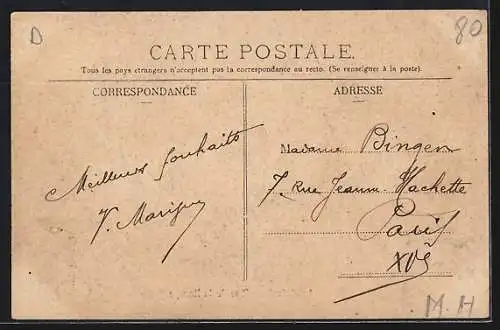 D
80
CARTE POSTALE.
Tous les pays étrangers n'acceptent pas la correspondance au recto. (Se renseigner à la poste).
CORRESPONDANCE
ADRESSE
Meilleurs souhaits
Madame Bingen
7, Rue Jeanne Hachette
Paris
XVe
M.H